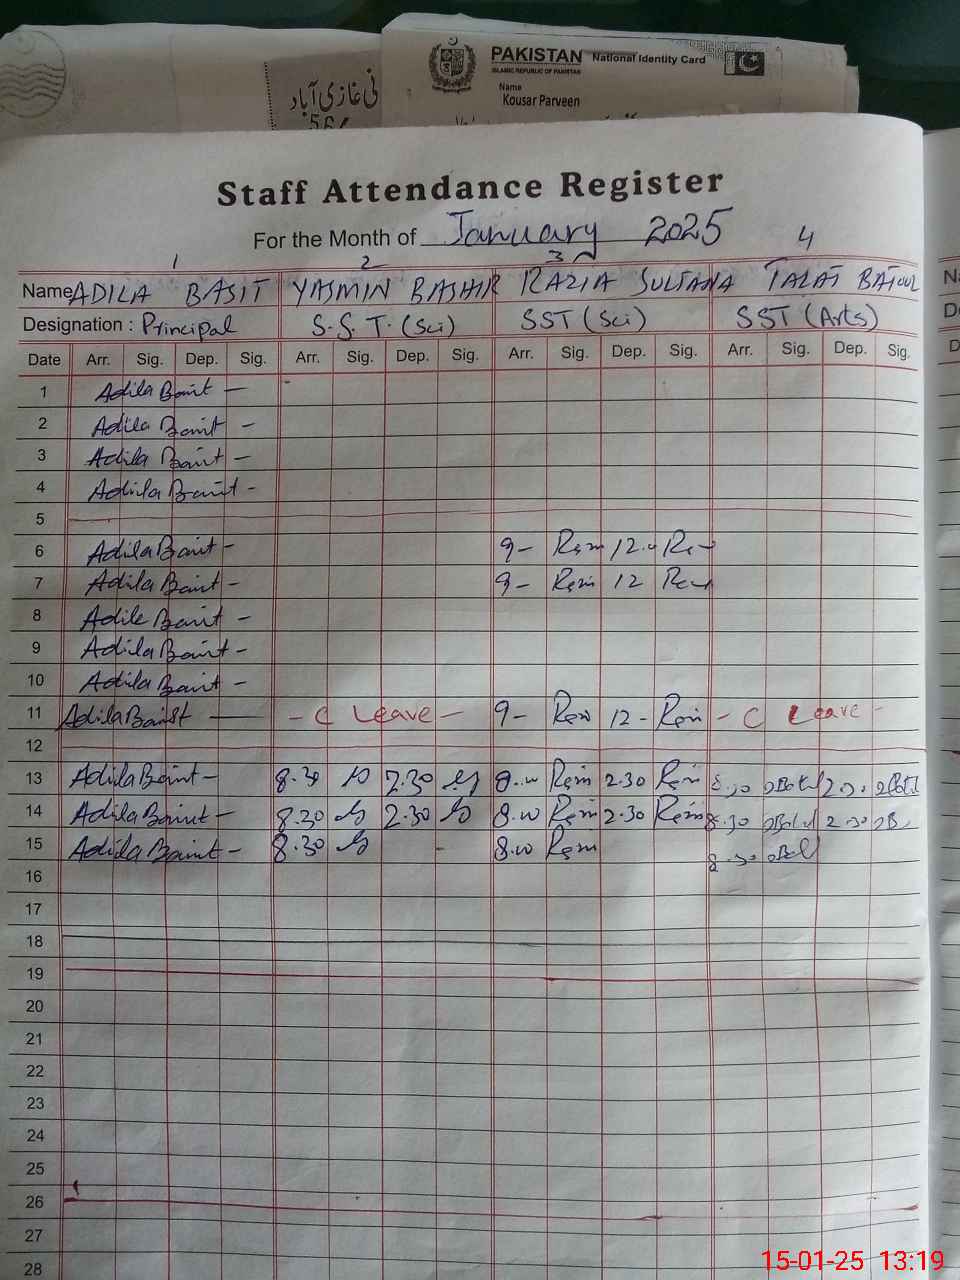 PAKISTAN National Identity Card
ISLAMIC REPUBLIC OF PAKISTAN
Name
Kousar Parveen
نی غازی آباد
56
Staff Attendance Register
For the Month of January 2025
1 2 3 4
Name ADILA BASIT YASMIN BASHIR RAZIA SULTANA TALAT BATOOL
Designation : Principal S.S.T. (Sci) SST (Sci) SST (Arts)
Date Arr. Sig. Dep. Sig. Arr. Sig. Dep. Sig. Arr. Sig. Dep. Sig. Arr. Sig. Dep. Sig.
1 Adila Basit -
2 Adila Basit -
3 Adila Basit -
4 Adila Basit -
5
6 Adila Basit - 9- 12
7 Adila Basit - 9- 12
8 Adila Basit -
9 Adila Basit -
10 Adila Basit -
11 Adila Basit - - C Leave - 9- 12- - C Leave -
12
13 Adila Basit - 8.30 2.30 8.00 2.30 8.30 2.30
14 Adila Basit - 8.30 2.30 8.00 2.30 8.30 2.30
15 Adila Basit - 8.30 - 8.00 8.30
16
17
18
19
20
21
22
23
24
25
26
27
28
15-01-25 13:19